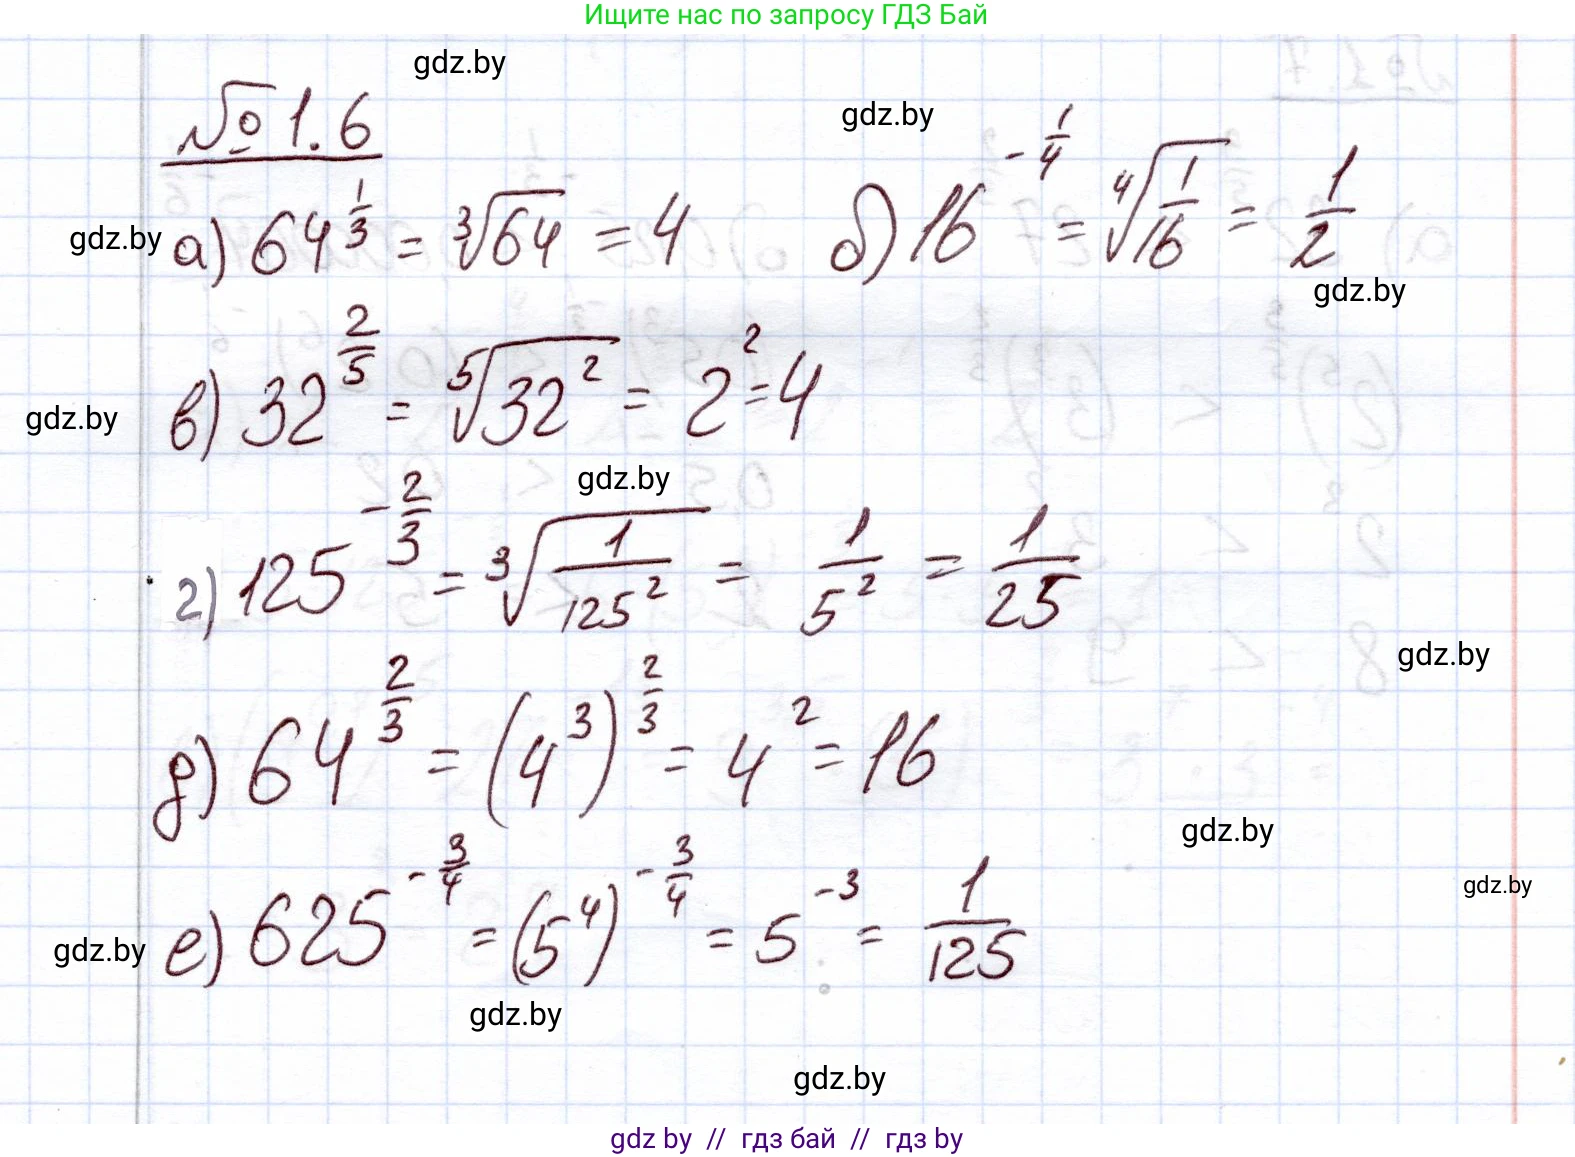 Ищите нас по запросу ГДЗ Бай
gdz.by
№ 1.6
gdz.by
а) 64^(1/3) = ∛64 = 4   б) 16^(-1/4) = ∜(1/16) = 1/2
gdz.by
gdz.by
в) 32^(2/5) = ⁵√(32²) = 2² = 4
gdz.by
gdz.by
г) 125^(-2/3) = ∛(1/125²) = 1/5² = 1/25
gdz.by
д) 64^(2/3) = (4³)^(2/3) = 4² = 16
gdz.by
gdz.by
е) 625^(-3/4) = (5⁴)^(-3/4) = 5^(-3) = 1/125
gdz.by
gdz.by
gdz.by
gdz by // гдз бай // гдз by